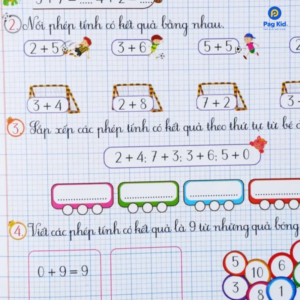 Pag Kid
2 Nối phép tính có kết quả bằng nhau.
2 + 5 3 + 6 5 + 5
3 + 4 2 + 8 7 + 2
3 Sắp xếp các phép tính có kết quả theo thứ tự từ bé
2 + 4; 7 + 3; 3 + 6; 5 + 0
4 Viết các phép tính có kết quả là 9 từ những quả bóng
0 + 9 = 9
5 10 6
3 8 1